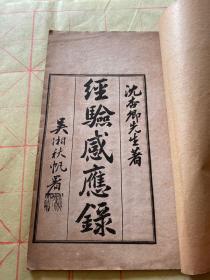 沈杏卿先生著
經驗感應錄
吳湘秋帆署